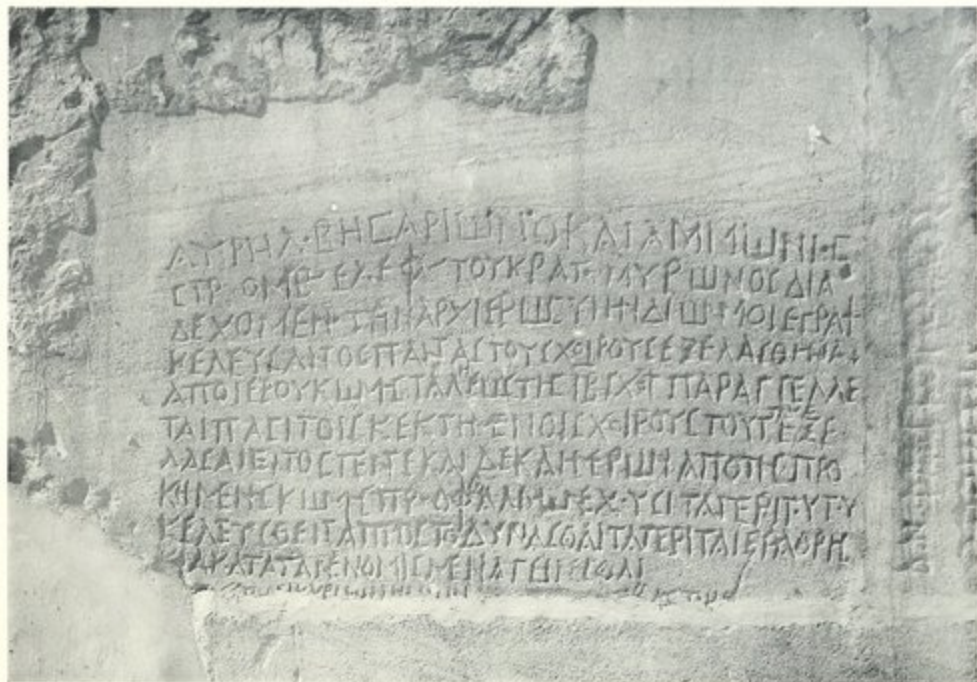 ΑΥΡΗΛ·ΒΗCΑΡΙШΝΟΚΑΙΑΜΜШΝΙ·C
CΤΡ·ΟΜΒ·ΕΛΕΦ·ΤΟΥΚΡΑΤ·ΜΥΡШΝΟCΔΙΑ
ΔΕΧΟΜΕΝ·ΤΗΝΑΡΧΙΕΡШCΥΝΗΝΔΙШΝΜΟΙΕΓΡΑΨ
ΚΕΛΕΥCΑΝΤΟCΠΑΝΤΑCΤΟΥCΧΟΙΡΟΥCΕΞΕΛΑCΘΗΝΑΙ
ΑΠΟΙΕΡΟΥΚШΜΗCΤΑΛΜΕШCΤΗCΙΒCΧΟΙΠΑΡΑΓΓΕΛΛΕ
ΤΑΙΠΑCΙΤΟΙCΚΕΚΤΗΜΕΝΟΙCΧΟΙΡΟΥCΤΟΥΤΟΥCΕΞΕ
ΛΑCΑΙΕΝΤΟCΠΕΝΤΕΚΑΙΔΕΚΑΗΜΕΡШΝΑΠΟΤΗCΠΡΟ
ΚΗΜΕΝΗCΚШΜΗCΠΡ·ΟΦΘΑΛΜШΝΕΧ·ΥCΙΤΑΠΕΡΙΤ·ΥΤ·Υ
ΚΕΛΕΥCΘΕΝΤΑΠΡΟCΤΟΔΥΝΑCΘΑΙΤΑΠΕΡΙΤΑΙΕΡΑΘΡΗC
ΚΙΑΚΑΤΑΤΑΝΕΝΟΜΙCΜΕΝΑΓΕΙΝΕCΘΑΙ